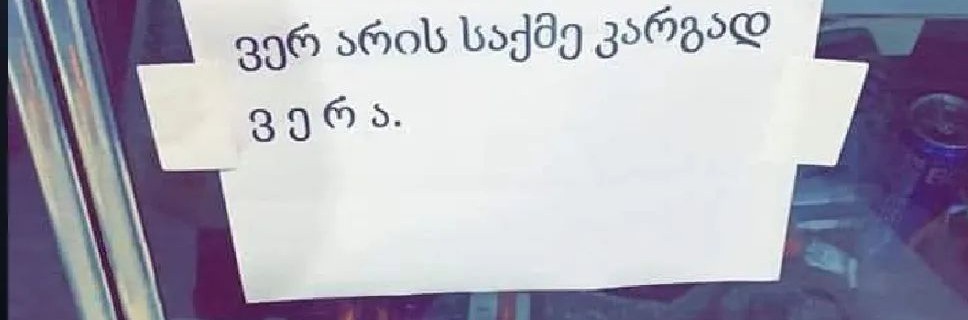 ვერ არის საქმე კარგად
ვ ე რ ა.